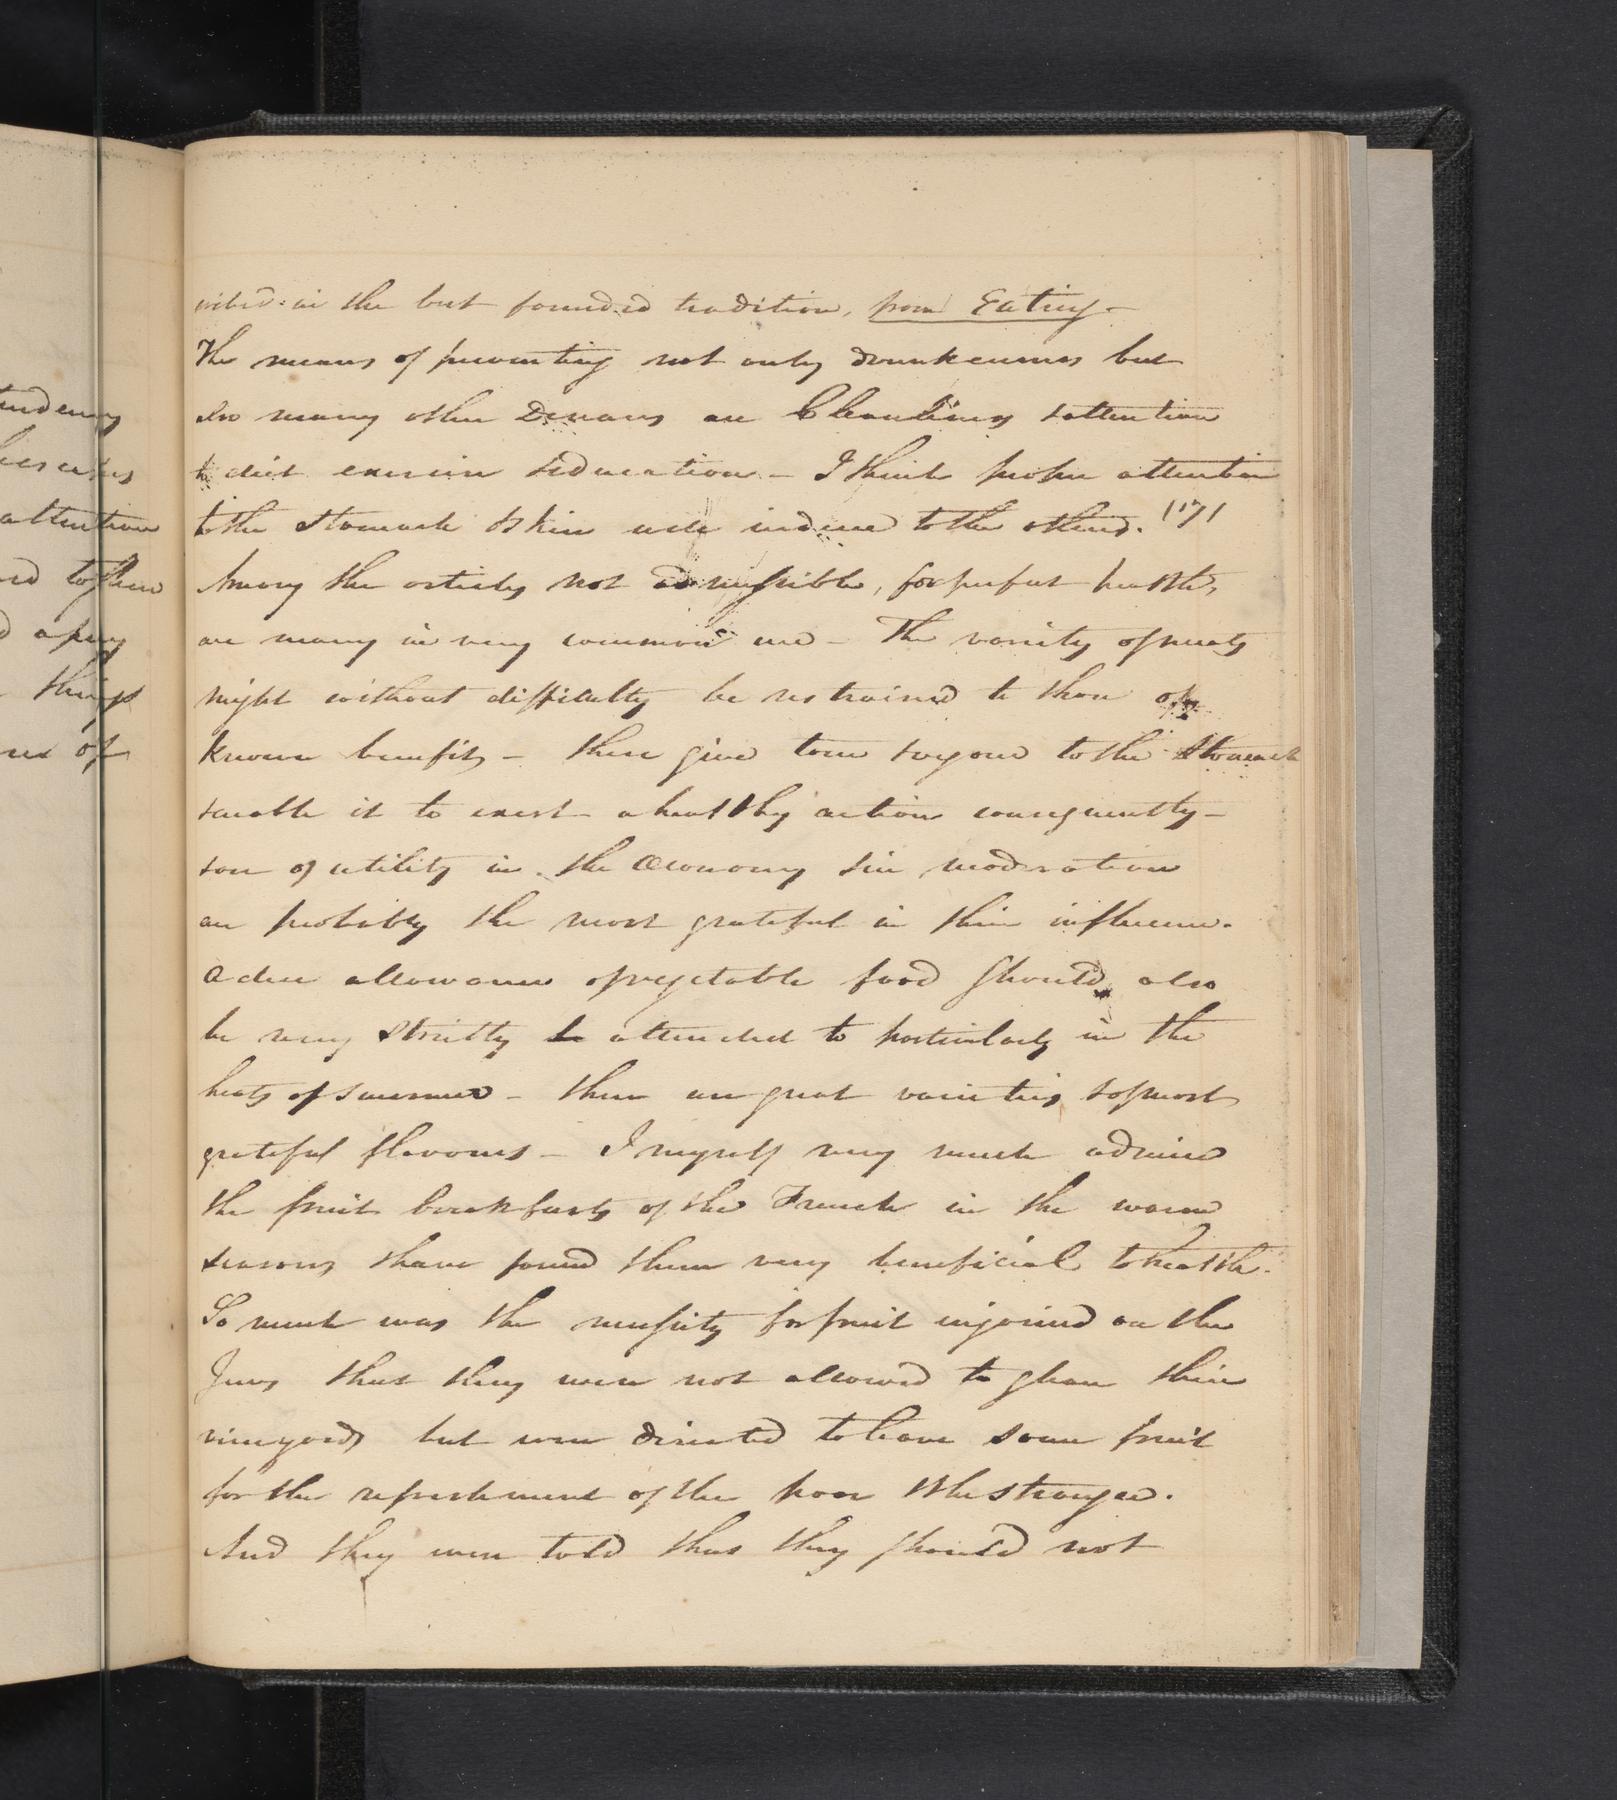 in the best founded tradition, from Eating —
The means of preventing not only drunkenness but
also many other Diseases are Cleanliness & attention
to diet exercise & Education — I think proper attention
to the stomach & skin will induce to the others.
Among the articles not admissible, for perfect health,
are many in very common use — The variety of meats
might without difficulty be restrained to those of
known benefit — these give tone & vigour to the Stomach
& enable it to exert a healthy action consequently —
are of utility in the Œconomy & in moderation
are probably the most grateful in their influence.
A due allowance of vegetable food should also
be very strictly be attended to particularly in the
heats of summer — these are great varieties & of most
grateful flavours — I myself very much admire
the fruit breakfasts of the French in the warm
seasons & have found them very beneficial to health.
So much was the necessity for fruit injoined on the
Jews that they were not allowed to glean their
vineyards but were directed to leave some fruit
for the refreshment of the poor & the stranger.
And they were told that they should not
attention
things
of